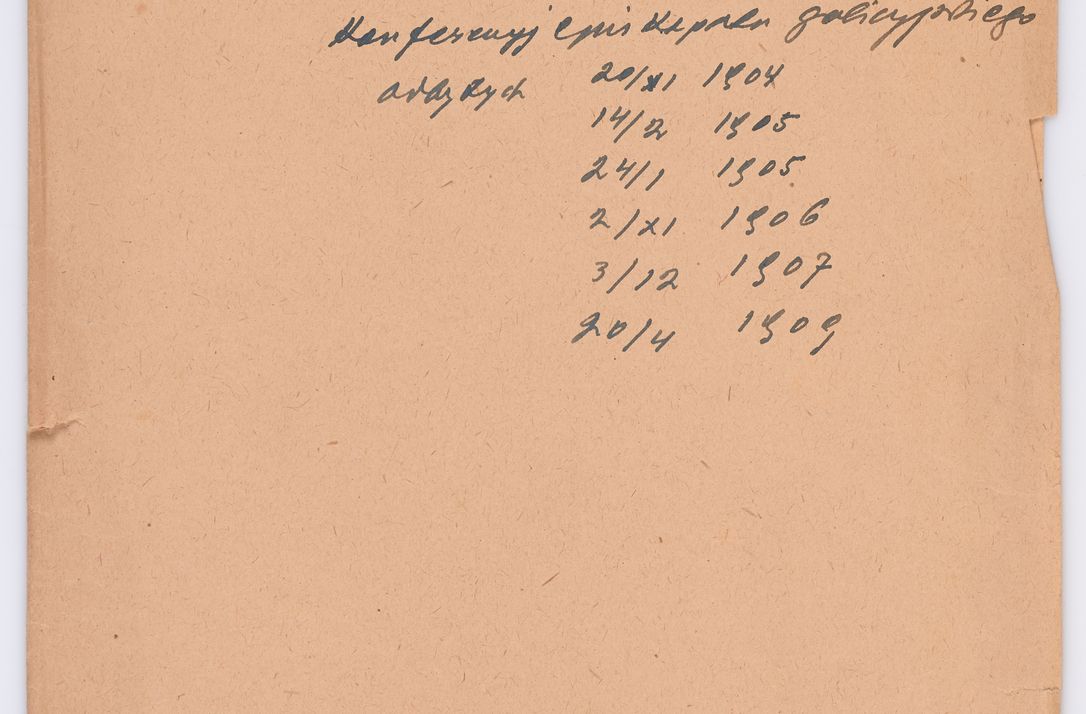 Konferencyj episkopatu galicyjskiego
odbytych 20/XI 1904
14/2 1905
24/1 1905
2/XI 1906
3/12 1907
20/4 1909